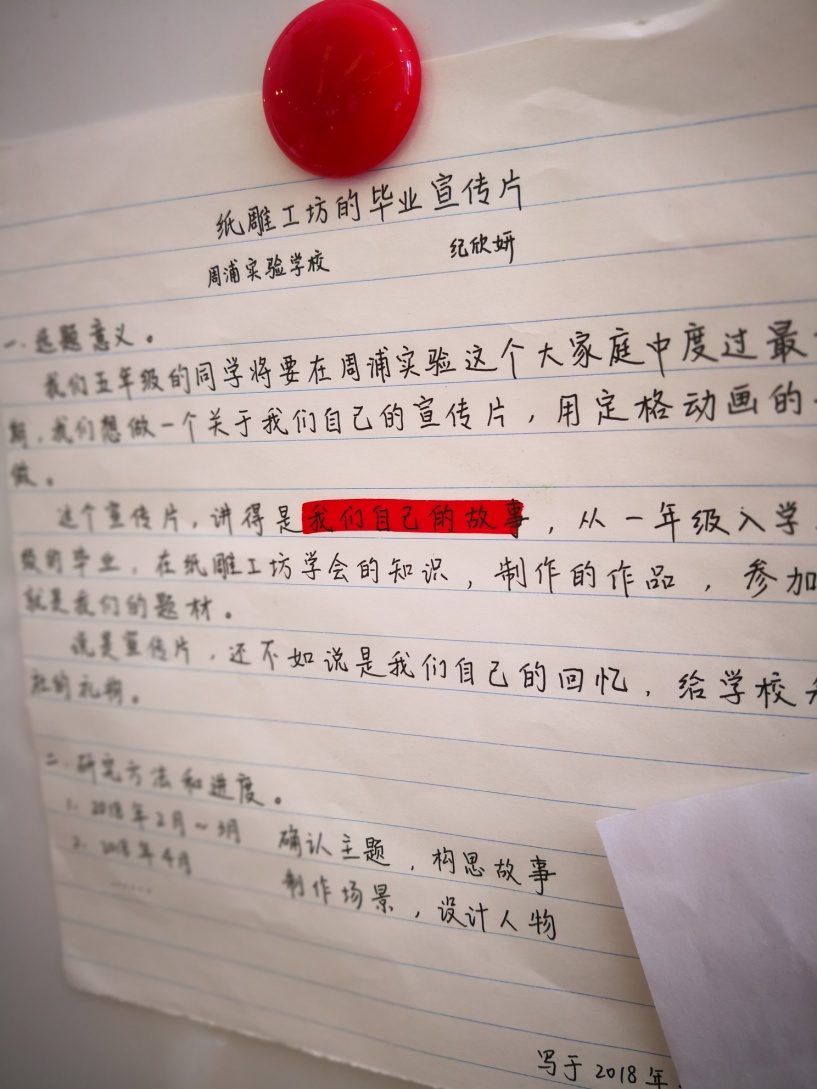 纸雕工坊的毕业宣传片
周浦实验学校 纪欣妍
一.选题意义。
我们五年级的同学将要在周浦实验这个大家庭中度过最
期,我们想做一个关于我们自己的宣传片,用定格动画的
做。
这个宣传片,讲得是我们自己的故事,从一年级入学
级的毕业,在纸雕工坊学会的知识,制作的作品,参加
就是我们的题材。
说是宣传片,还不如说是我们自己的回忆,给学校
社的礼物。
二.研究方法和进度。
1. 2018年2月~3月 确认主题,构思故事
2. 2018年4月 制作场景,设计人物
......
写于2018年.